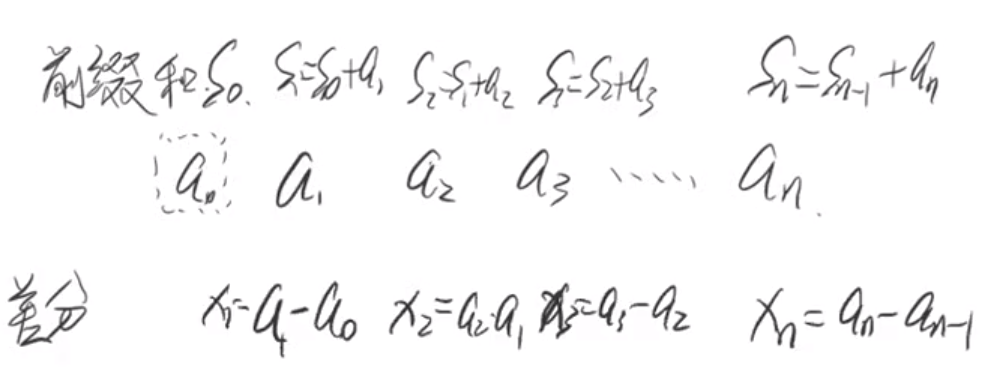 前缀和 S₀. S₁=S₀+a₁ S₂=S₁+a₂ S₃=S₂+a₃ Sₙ=Sₙ₋₁+aₙ
a₀ a₁ a₂ a₃ ...... aₙ.
差分 x₁=a₁-a₀ x₂=a₂-a₁ x₃=a₃-a₂ xₙ=aₙ-aₙ₋₁